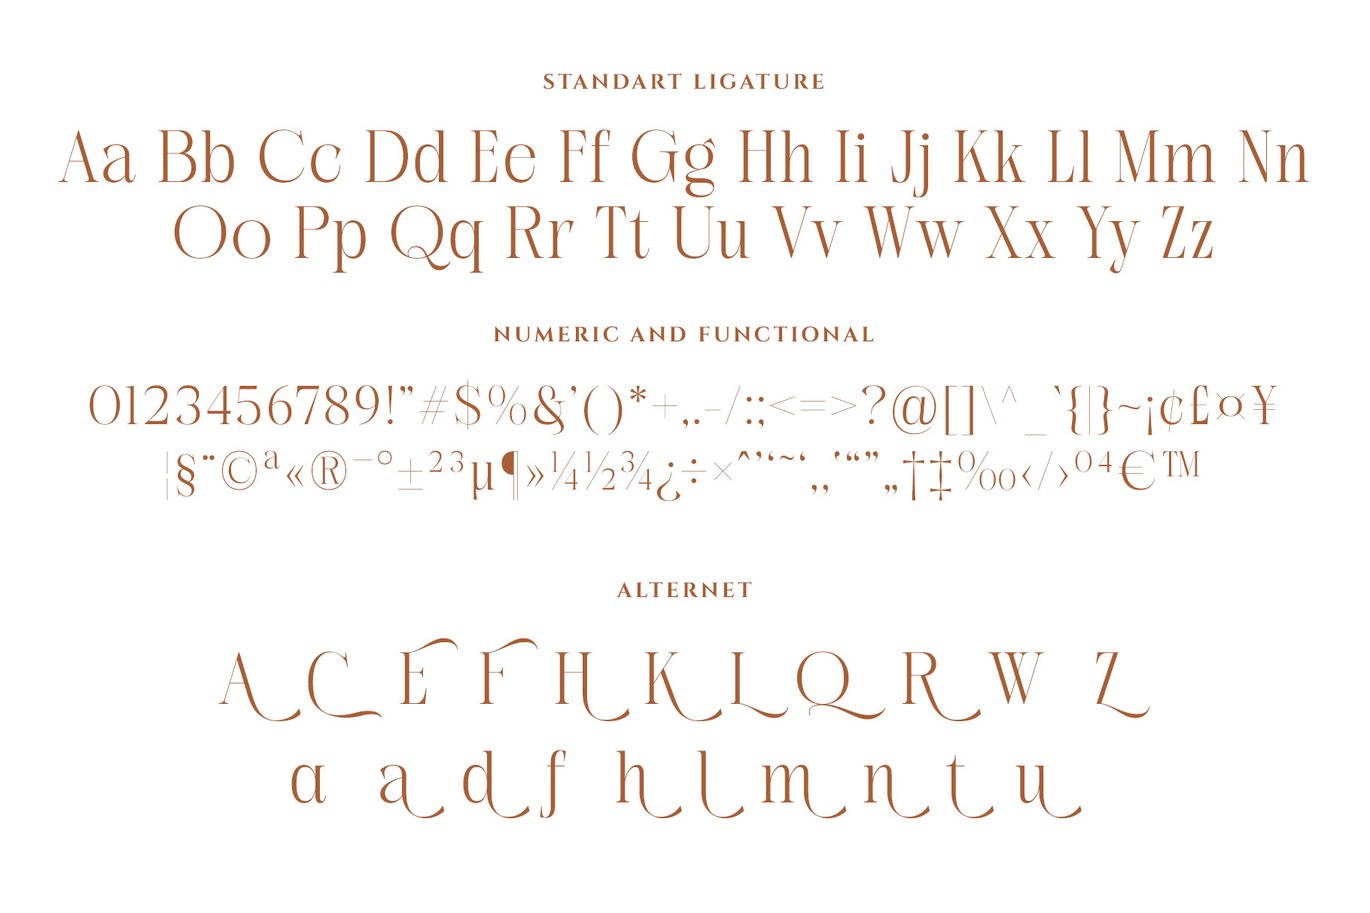 STANDART LIGATURE
Aa Bb Cc Dd Ee Ff Gg Hh Ii Jj Kk Ll Mm Nn
Oo Pp Qq Rr Tt Uu Vv Ww Xx Yy Zz
NUMERIC AND FUNCTIONAL
0123456789!"#$%&'()*+,.-/:;<=>?@[]\^_`{|}~¡¢£¤¥
¦§¨©ª«®¯°±²³µ¶»¼½¾¿÷×ˆ’‘˜‘‚,‛“”„†‡‰‹⁄›⁰⁴€™
ALTERNET
A C E F H K L Q R W Z
ɑ a d f h l m n t u